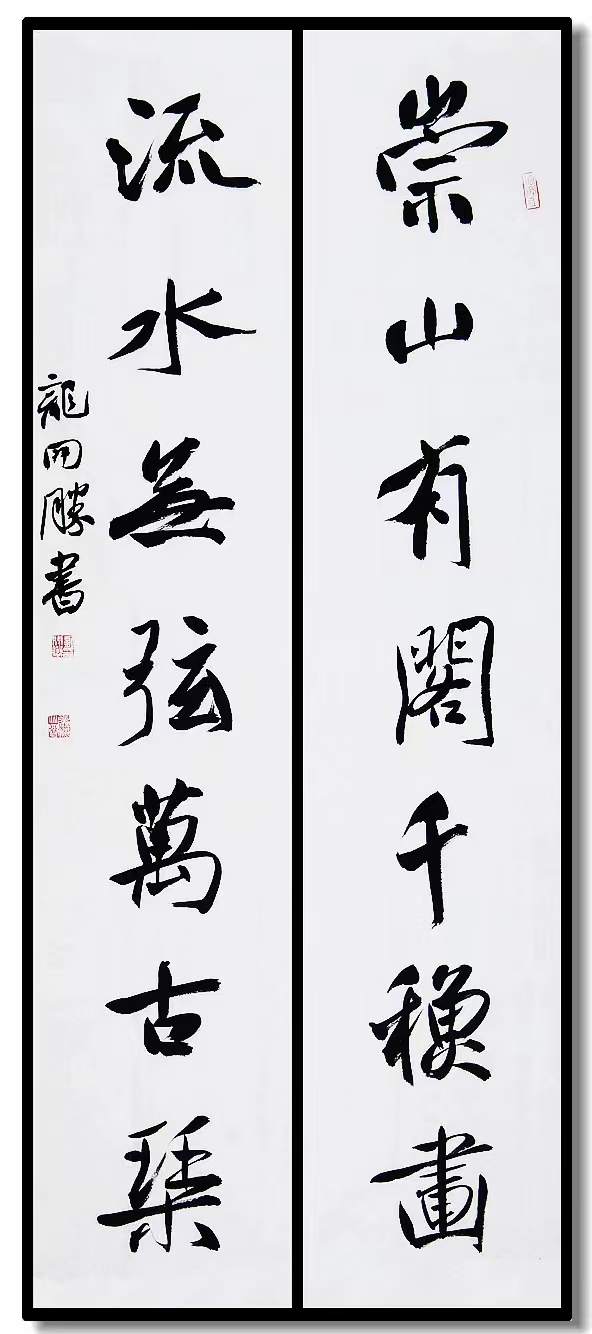 崇山有閣千穐畫
流水無弦萬古琴
龍開勝書